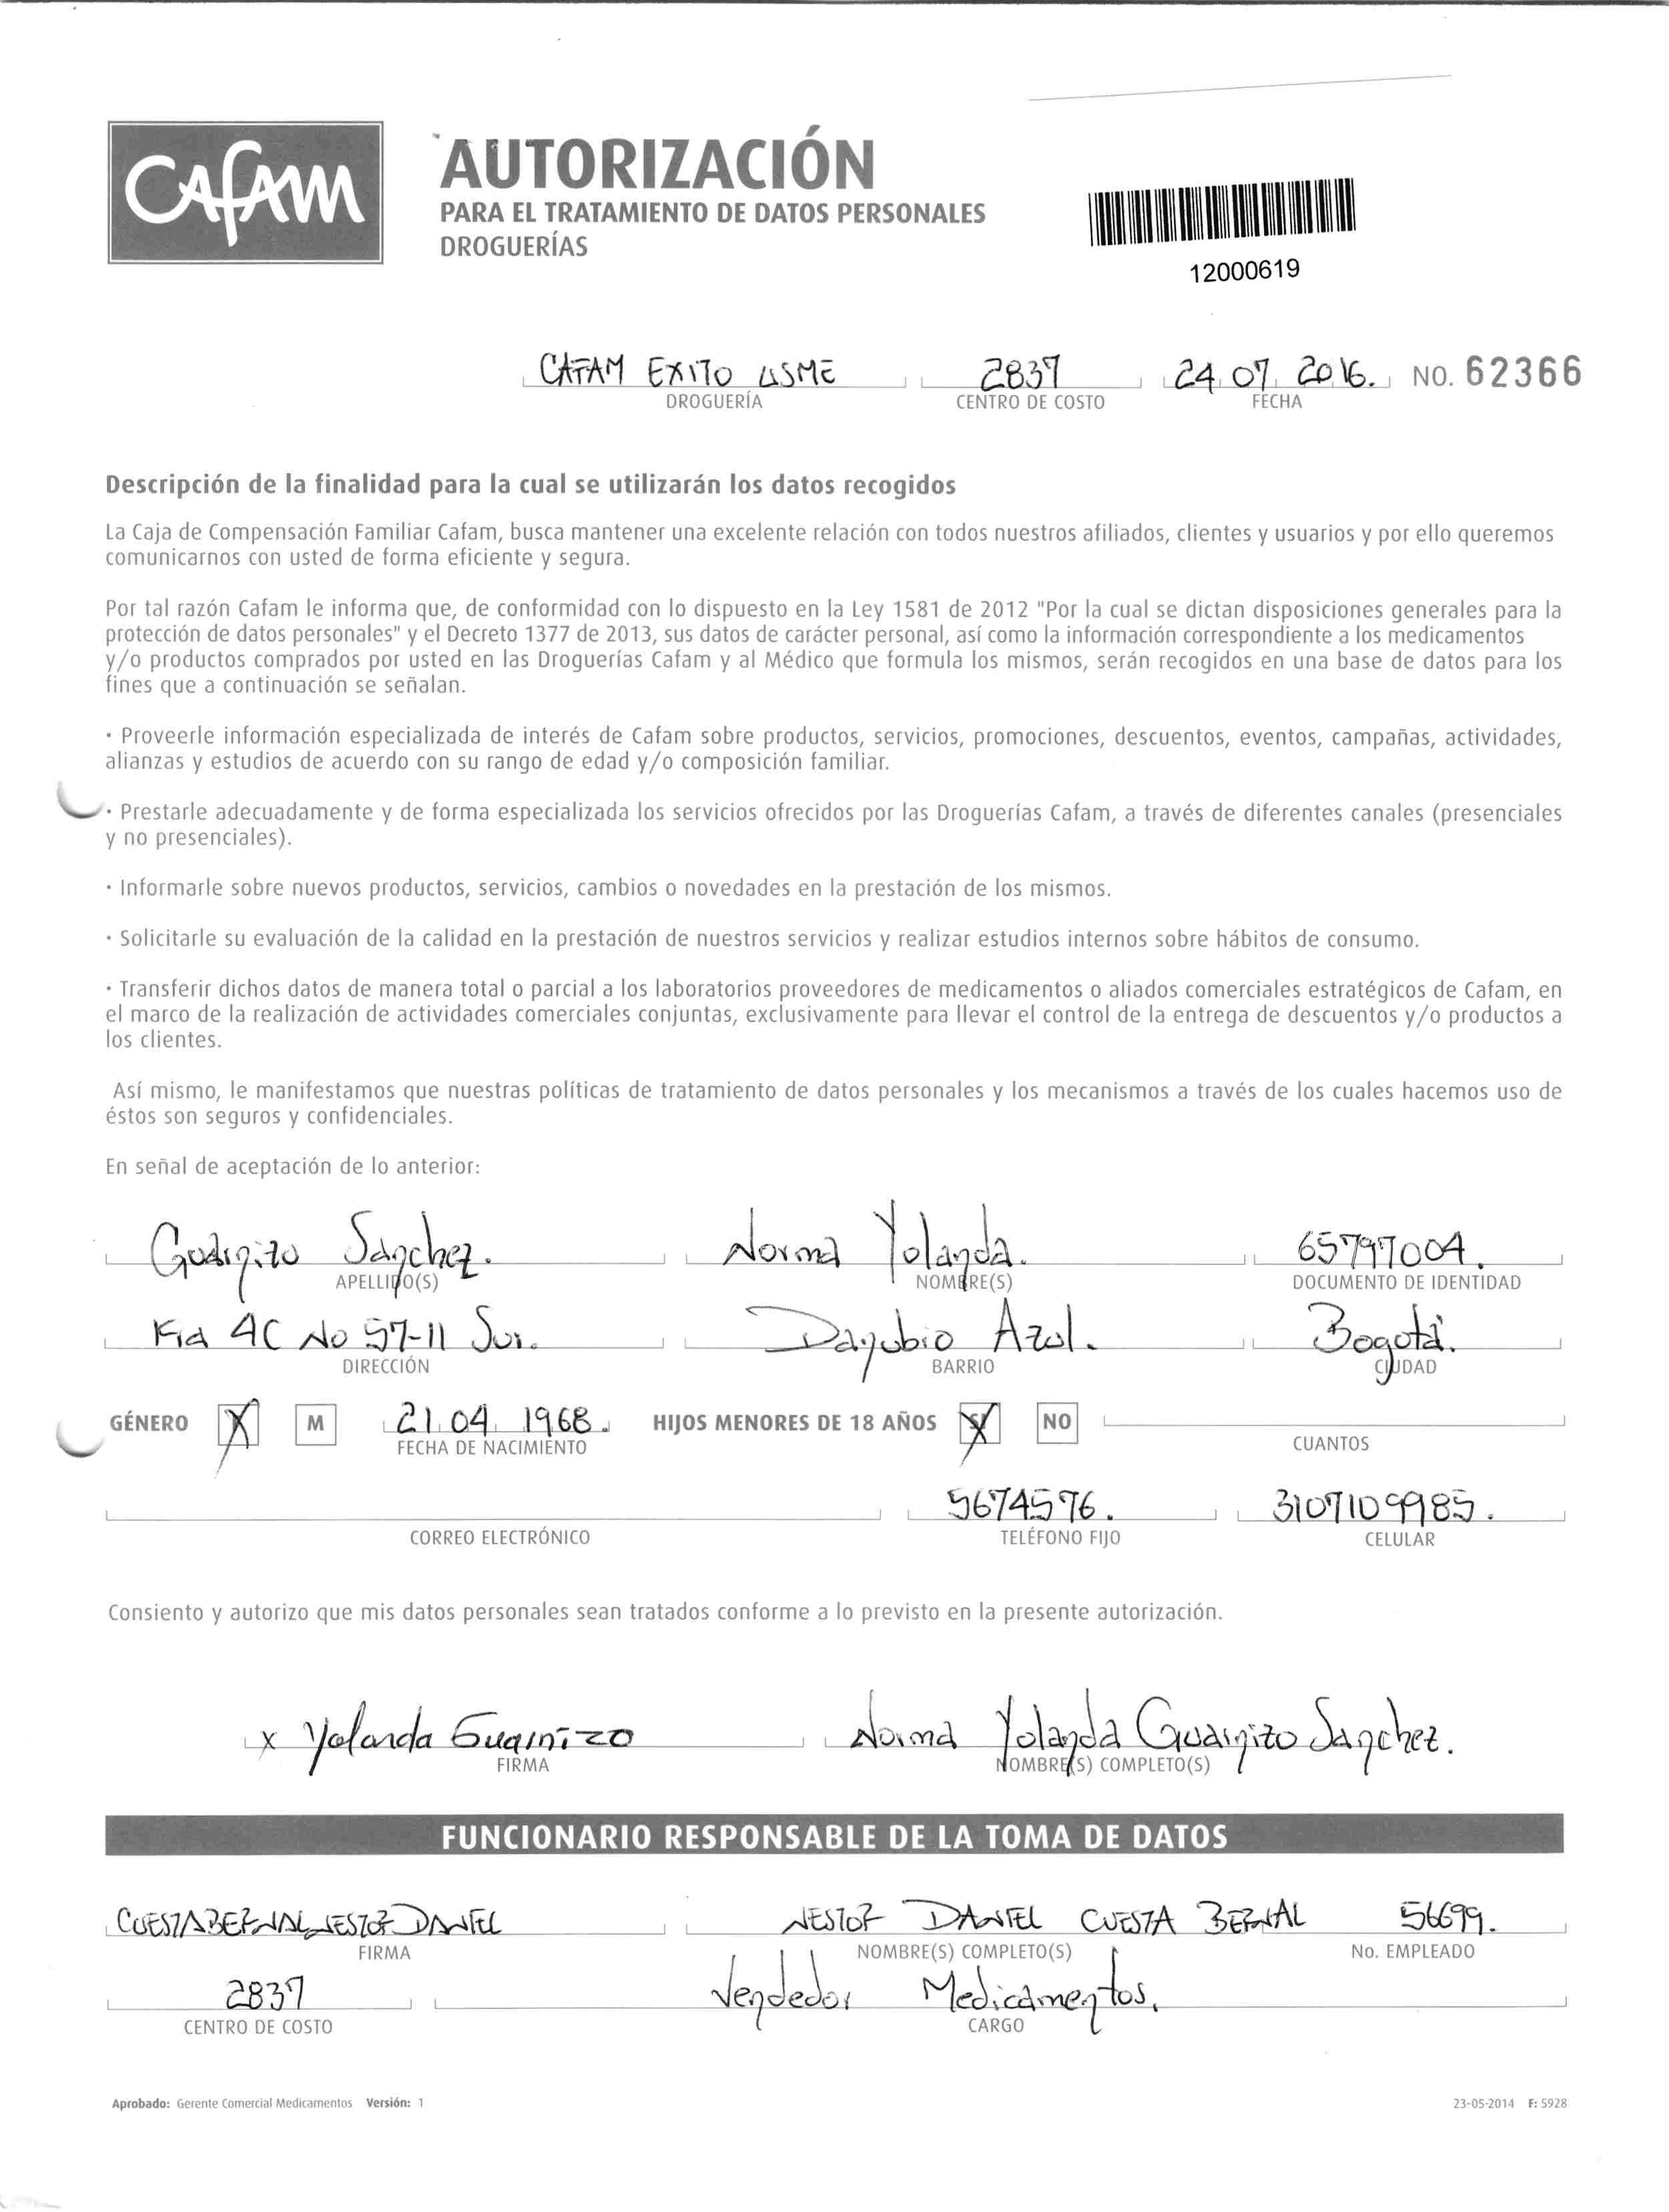 CAFAM
AUTORIZACIÓN
PARA EL TRATAMIENTO DE DATOS PERSONALES
DROGUERÍAS
12000619
CAFAM EXITO USME 2837 24 07 2016. NO. 62366
DROGUERÍA CENTRO DE COSTO FECHA
Descripción de la finalidad para la cual se utilizarán los datos recogidos
La Caja de Compensación Familiar Cafam, busca mantener una excelente relación con todos nuestros afiliados, clientes y usuarios y por ello queremos
comunicarnos con usted de forma eficiente y segura.
Por tal razón Cafam le informa que, de conformidad con lo dispuesto en la Ley 1581 de 2012 "Por la cual se dictan disposiciones generales para la
protección de datos personales" y el Decreto 1377 de 2013, sus datos de carácter personal, así como la información correspondiente a los medicamentos
y/o productos comprados por usted en las Droguerías Cafam y al Médico que formula los mismos, serán recogidos en una base de datos para los
fines que a continuación se señalan.
· Proveerle información especializada de interés de Cafam sobre productos, servicios, promociones, descuentos, eventos, campañas, actividades,
alianzas y estudios de acuerdo con su rango de edad y/o composición familiar.
· Prestarle adecuadamente y de forma especializada los servicios ofrecidos por las Droguerías Cafam, a través de diferentes canales (presenciales
y no presenciales).
· Informarle sobre nuevos productos, servicios, cambios o novedades en la prestación de los mismos.
· Solicitarle su evaluación de la calidad en la prestación de nuestros servicios y realizar estudios internos sobre hábitos de consumo.
· Transferir dichos datos de manera total o parcial a los laboratorios proveedores de medicamentos o aliados comerciales estratégicos de Cafam, en
el marco de la realización de actividades comerciales conjuntas, exclusivamente para llevar el control de la entrega de descuentos y/o productos a
los clientes.
Así mismo, le manifestamos que nuestras políticas de tratamiento de datos personales y los mecanismos a través de los cuales hacemos uso de
éstos son seguros y confidenciales.
En señal de aceptación de lo anterior:
Guarnizo Sanchez. Norma Yolanda. 65797004.
APELLIDO(S) NOMBRE(S) DOCUMENTO DE IDENTIDAD
Kra 4C No 57-11 Sur. Danubio Azul. Bogotá.
DIRECCIÓN BARRIO CIUDAD
GÉNERO X M 21 04 1968. HIJOS MENORES DE 18 AÑOS X NO
FECHA DE NACIMIENTO CUANTOS
5674576. 3107109985.
CORREO ELECTRÓNICO TELÉFONO FIJO CELULAR
Consiento y autorizo que mis datos personales sean tratados conforme a lo previsto en la presente autorización.
x Yolanda Guarnizo Norma Yolanda Guarnizo Sanchez.
FIRMA NOMBRE(S) COMPLETO(S)
FUNCIONARIO RESPONSABLE DE LA TOMA DE DATOS
CUESTA BERNAL NESTOR DANIEL NESTOR DANIEL CUESTA BERNAL 56699.
FIRMA NOMBRE(S) COMPLETO(S) No. EMPLEADO
2837 Vendedor Medicamentos.
CENTRO DE COSTO CARGO
Aprobado: Gerente Comercial Medicamentos Versión: 1 23-05-2014 F: 5928